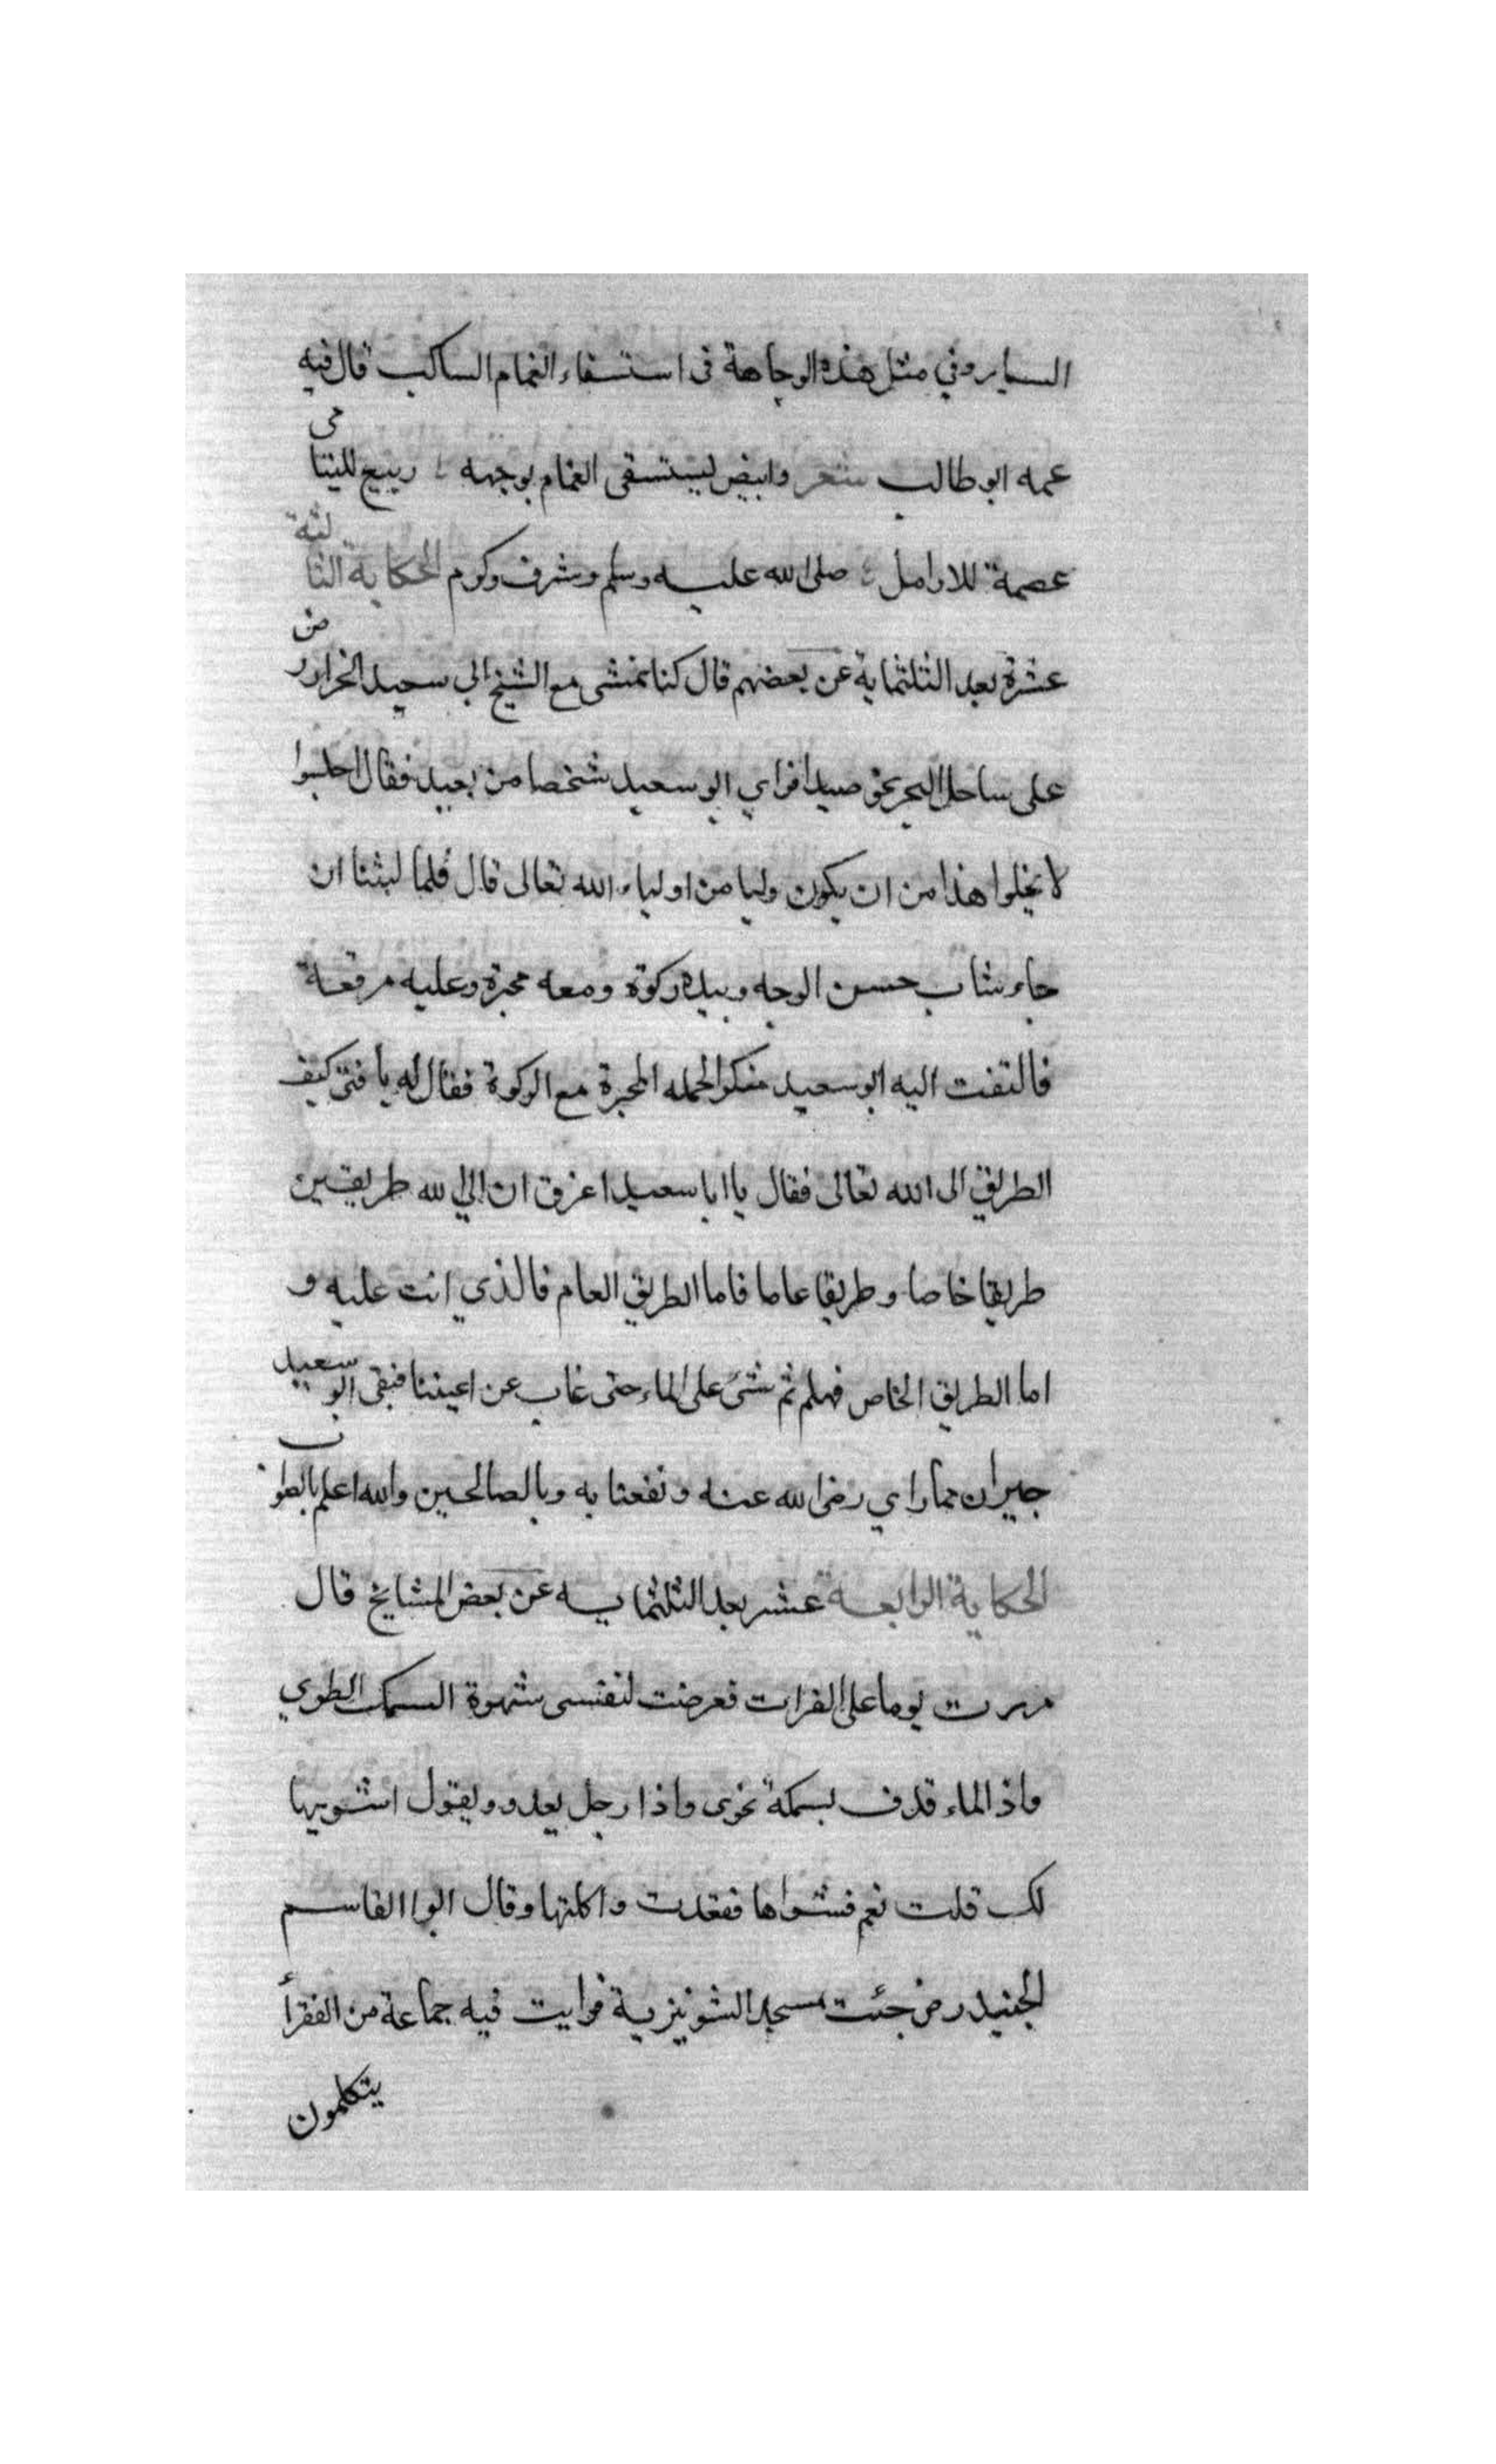 الساير وفي مثل هذه الوجاهة في استسقاء الغمام الساكب قال فيه
عمه ابو طالب شعر وابيض ليستسقى الغمام بوجهه ربيع لليتامى
عصمة للارامل صلى الله عليه وسلم وشرف وكرم الحكاية الثالثة
عشرة بعد الثلثماية عن بعضهم قال كنا نمشى مع الشيخ ابي سعيد الخراز رض
على ساحل البحر نحو صيدا فراي ابو سعيد شخصا من بعيد فقال اجلسوا
لا يخلوا هذا من ان يكون وليا من اولياء الله تعالى قال فلما لبثنا ان
جاء شاب حسن الوجه وبيده ركوة ومعه محبرة وعليه مرقعة
فالتفت اليه ابو سعيد منكرا لحمله المحبرة مع الركوة فقال له يا فتى كيف
الطريق الى الله تعالى فقال يا ابا سعيد اعرف ان الي الله طريقين
طريقا خاصا وطريقا عاما فاما الطريق العام فالذي انت عليه و
اما الطريق الخاص فهلم ثم مشى على الماء حتى غاب عن اعيننا فبقى ابو سعيد
حيران مما راي رضى الله عنه ونفعنا به وبالصالحين والله اعلم بالصواب
الحكاية الرابعة عشر بعد الثلثمايه عن بعض المشايخ قال
مررت يوما على الفرات فعرضت لنفسى شهوة السمك الطري
واذ الماء قذف بسمكة نحوى واذا رجل يعدو ويقول اشويها
لك قلت نعم فشواها فقعدت واكلتها وقال ابوا القاسم
الجنيد رض جئت مسجد الشونيزية فرايت فيه جماعة من الفقرأ
يتكلمون